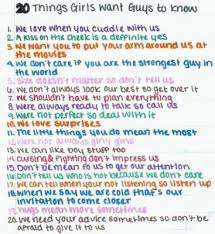 20 Things Girls Want Guys to know
1. We love when you cuddle with us
2. A kiss on the cheek is a definite yes
3. We want you to put your arm around us at
the movies
4. We don't care if you are the strongest guy in
the world
5. Size doesn't matter so don't tell us
6. We don't always look our best so get over it
7. We shouldn't have to plan everything
8. We're always ready to talk so call us
9. We're not perfect so deal with it
10. We love surprises
11. The little things you do mean the most
12. We're not always girly girls
13. We can like you buff too
14. Cursing & fighting don't impress us
15. Don't be mean to us to get our attention
16. Don't tell us who is not because we don't care
17. We can tell when your not listening so listen up
18. When we say we are cold that's our
invitation to come closer
19. Hugs mean more sometimes
20. We need your advice sometimes so don't be
afraid to give it to us